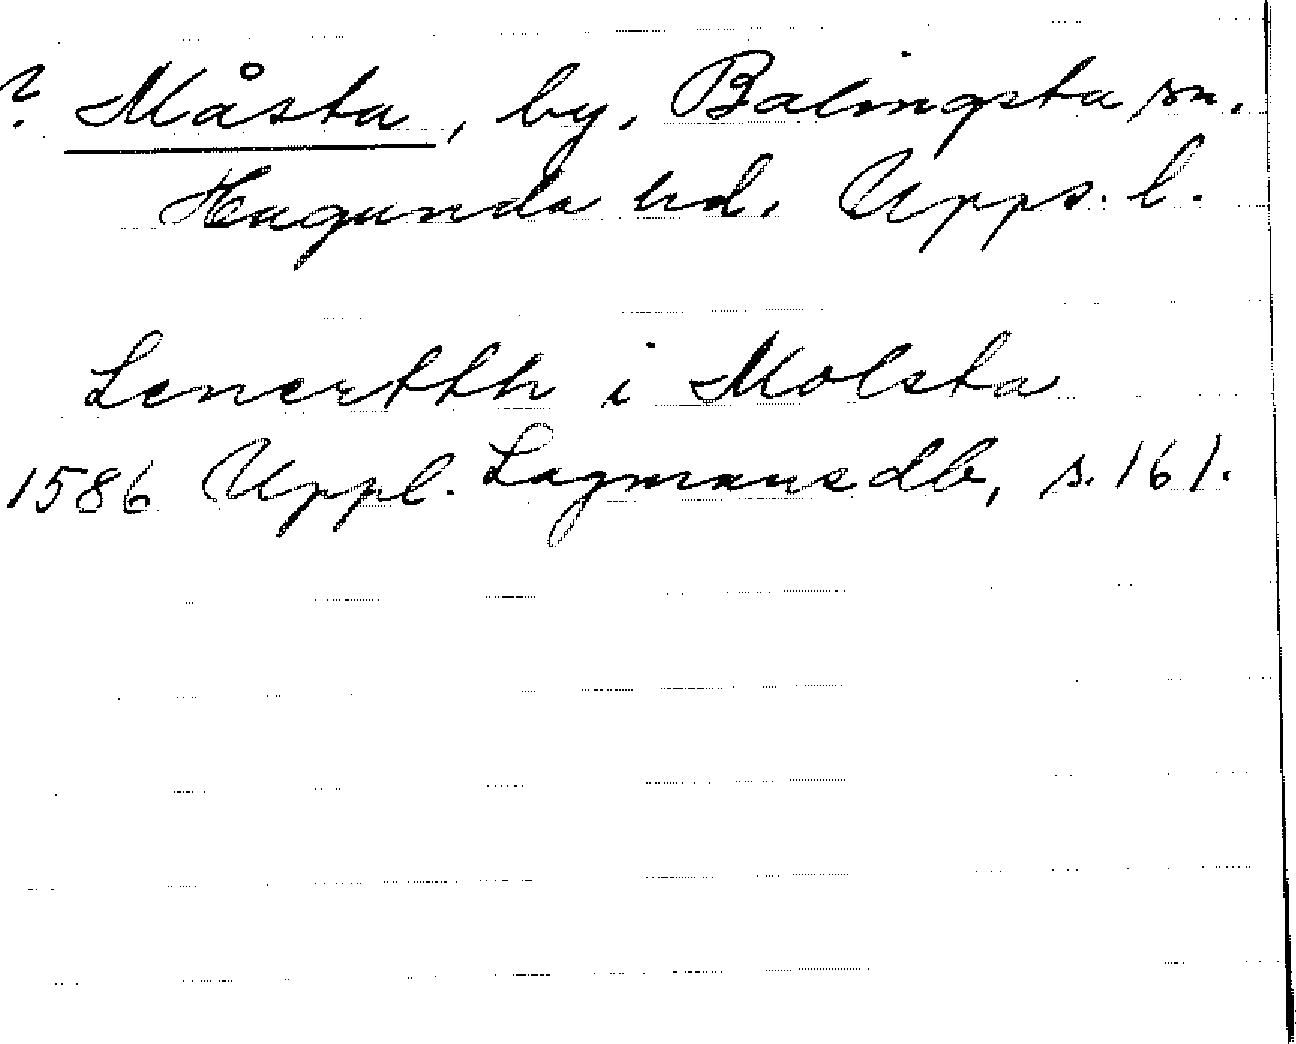 ? Måsta, by, Balingsta sn.
Hagunda hd, Upps. l.
Lenertth i Molsta
1586 Uppl. Lagmansdb, s. 161.